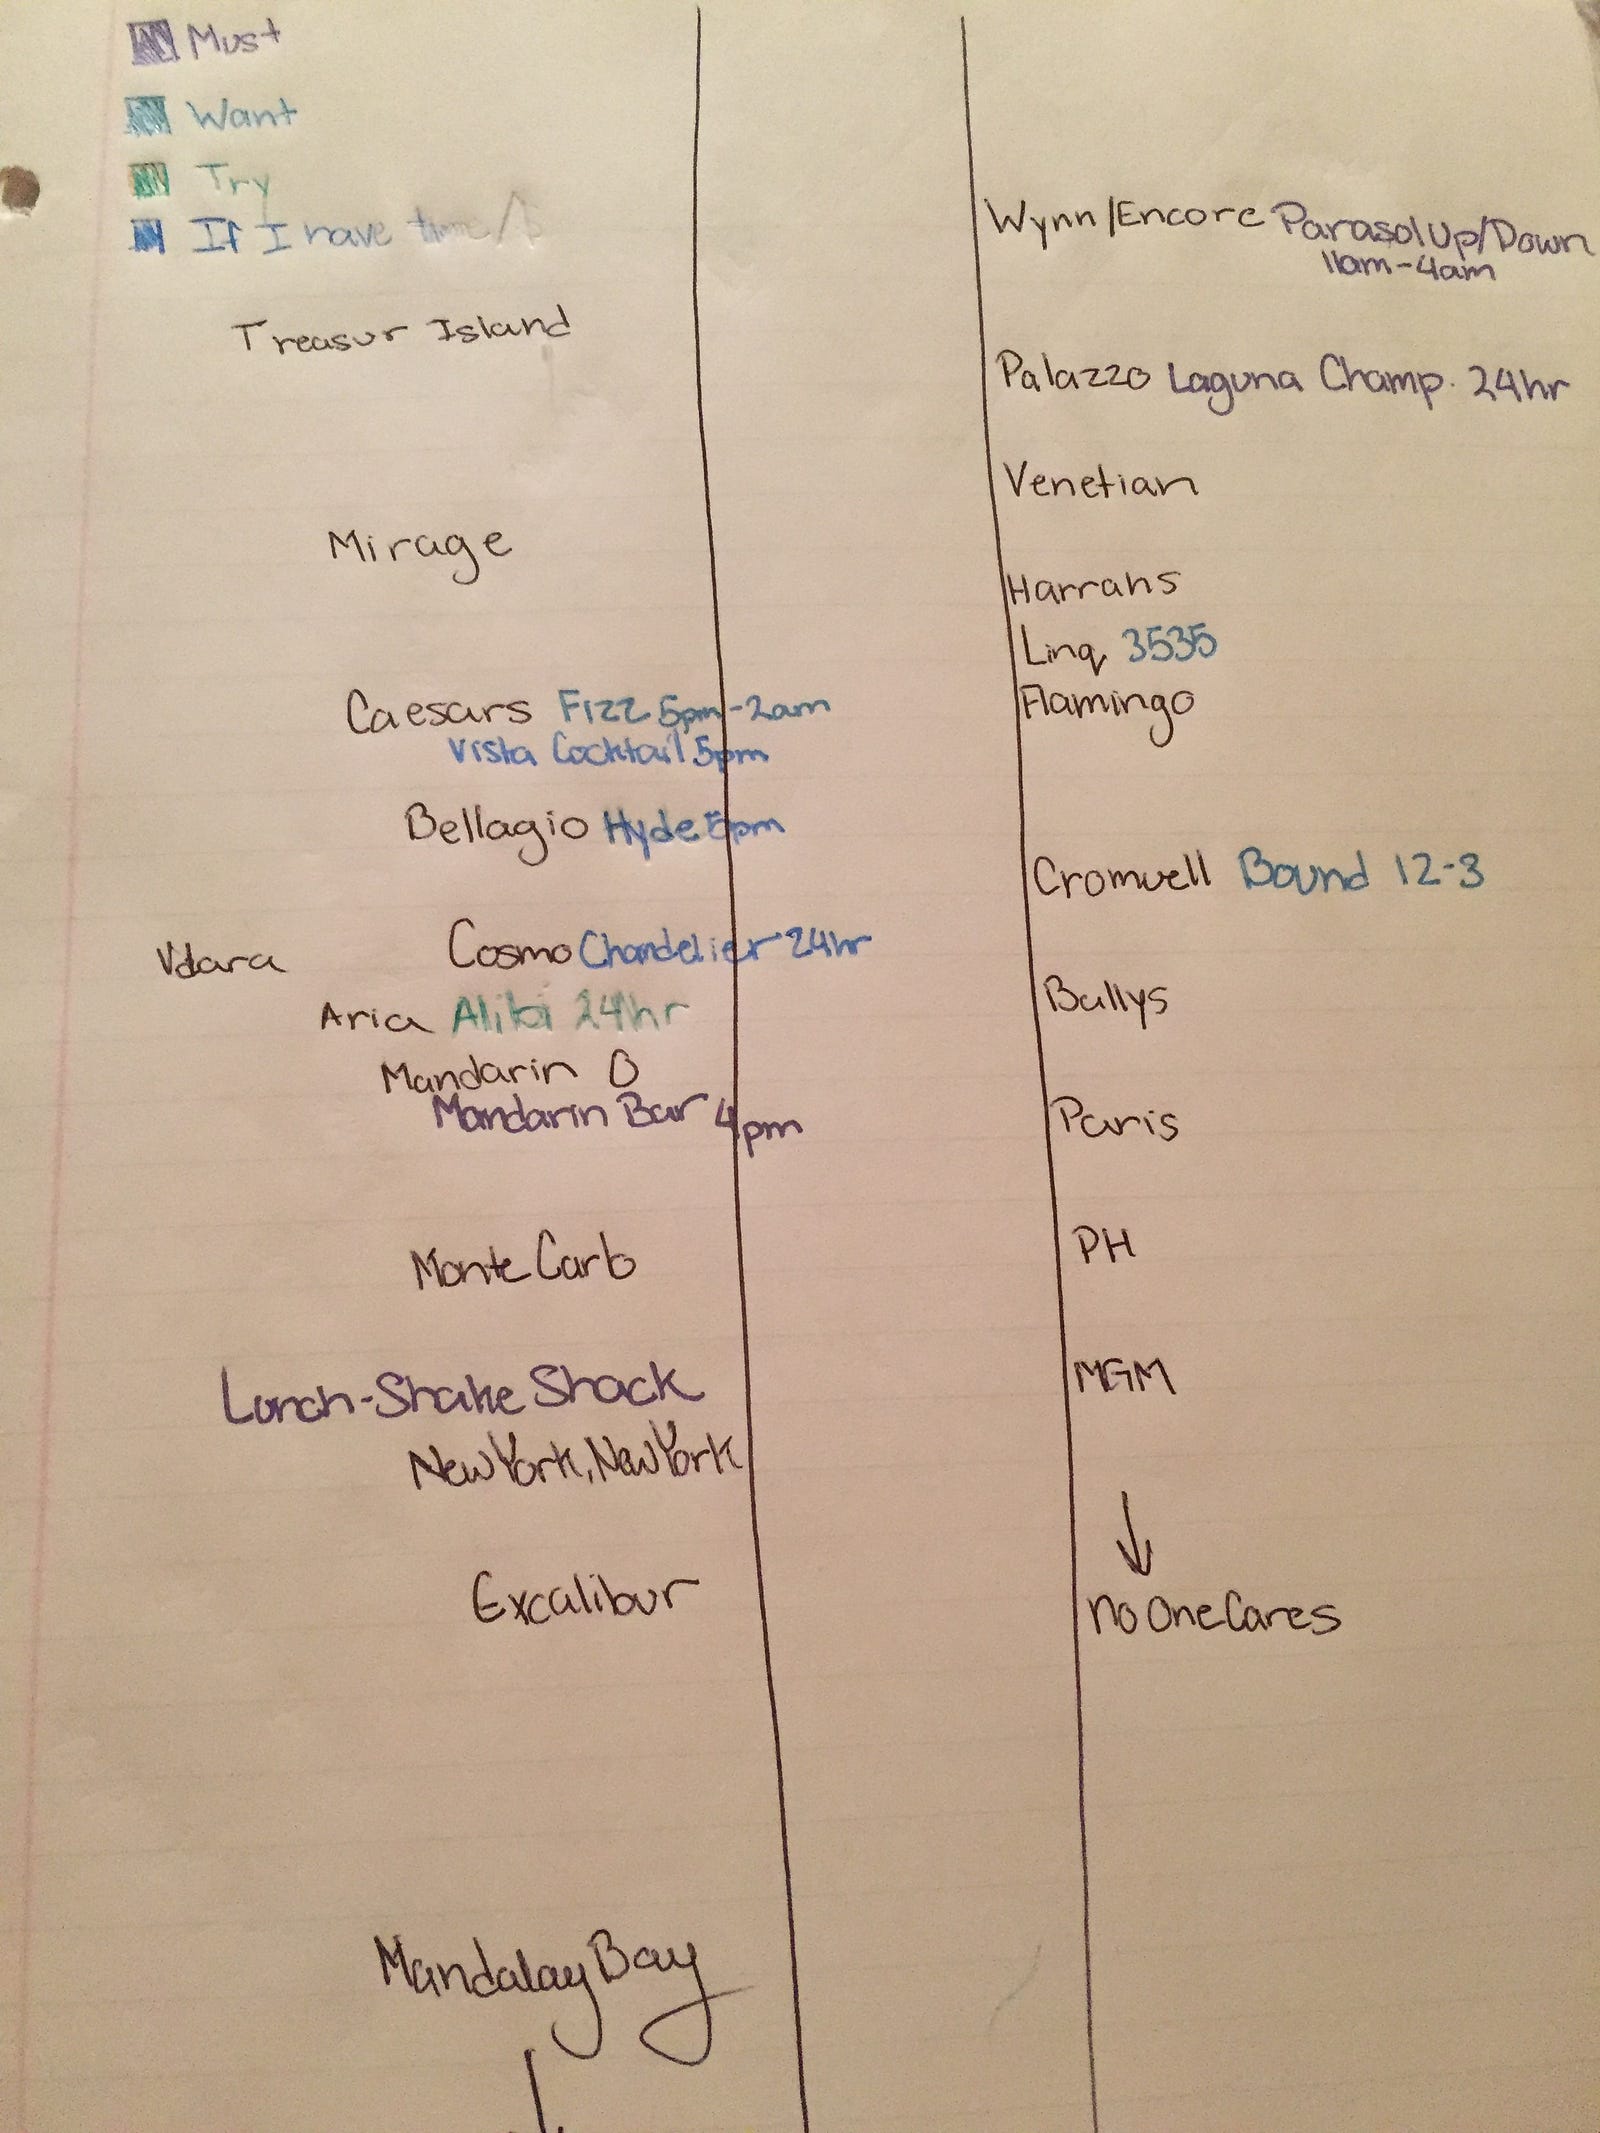 Must
Want
Try
If I have time/$
Treasur Island
Mirage
Caesars Fizz 5pm-2am
Vista Cocktail 5pm
Bellagio Hyde 5pm
Vdara
Cosmo Chandelier 24hr
Aria Alibi 24hr
Mandarin O
Mandarin Bar 4pm
Monte Carlo
Lunch-Shake Shack
New York, New York
Excalibur
Mandalay Bay
Wynn/Encore Parasol Up/Down
11am-4am
Palazzo Laguna Champ. 24hr
Venetian
Harrahs
Linq 3535
Flamingo
Cromwell Bound 12-3
Ballys
Paris
PH
MGM
No One Cares